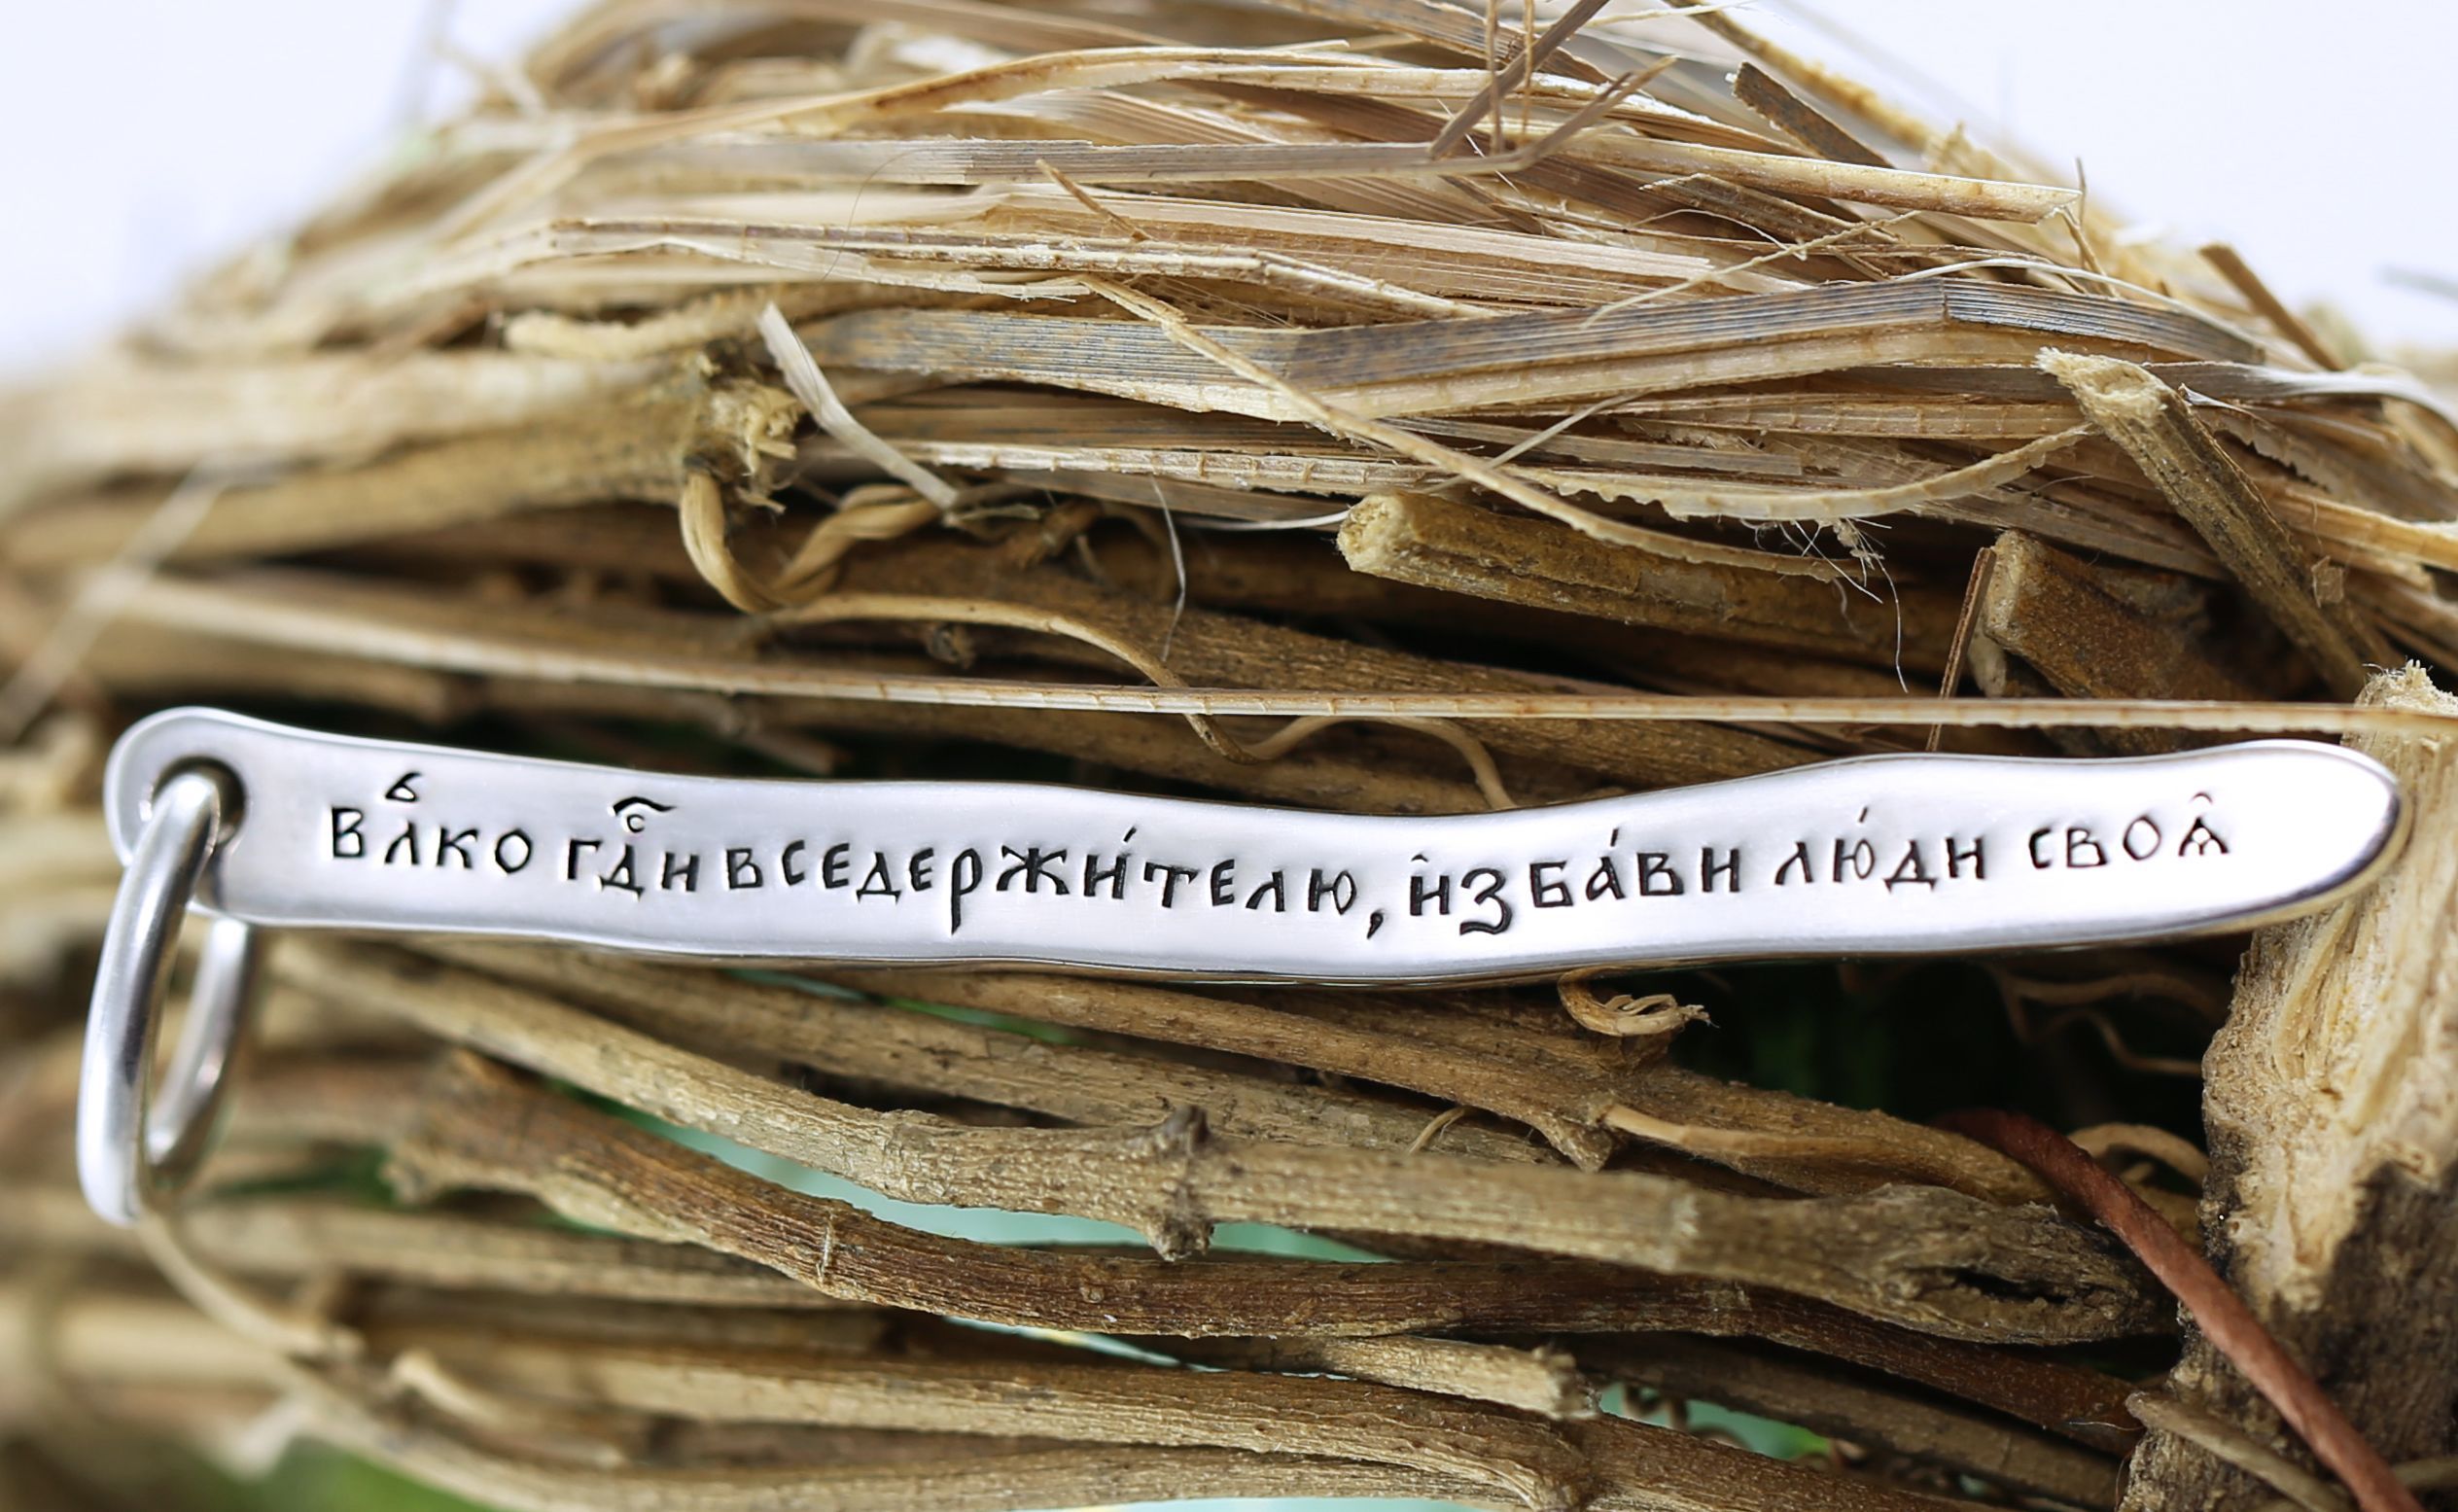 влⷣко гдⷭ҇и вседержи́телю, и҆зба́ви лю́ди своѧ̑